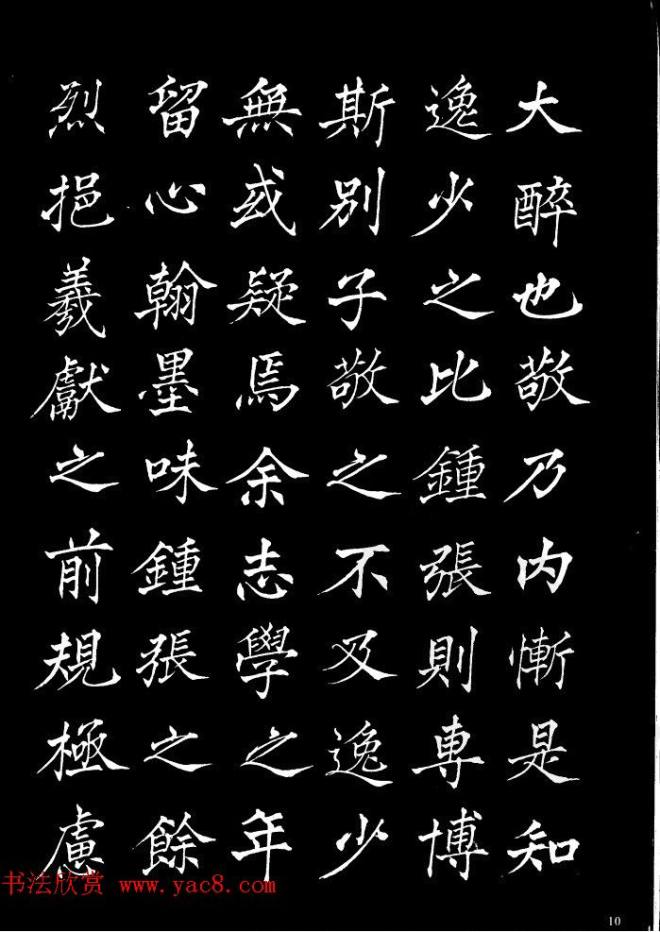 大醉也敬乃內慚是知
逸少之比鍾張則專博
斯別子敬之不及逸少
無或疑焉余志學之年
留心翰墨味鍾張之餘
烈挹羲獻之前規極慮
书法欣赏 www.yac8.com
10